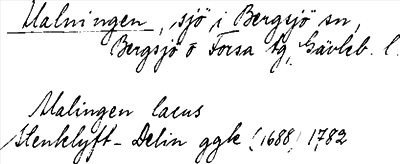 Malningen, sjö i Bergsjö sn,
Bergsjö o Forsa tg, Gävleb. l.
Malingen lacus
Stenklyft-Delin ggk (1688) 1782